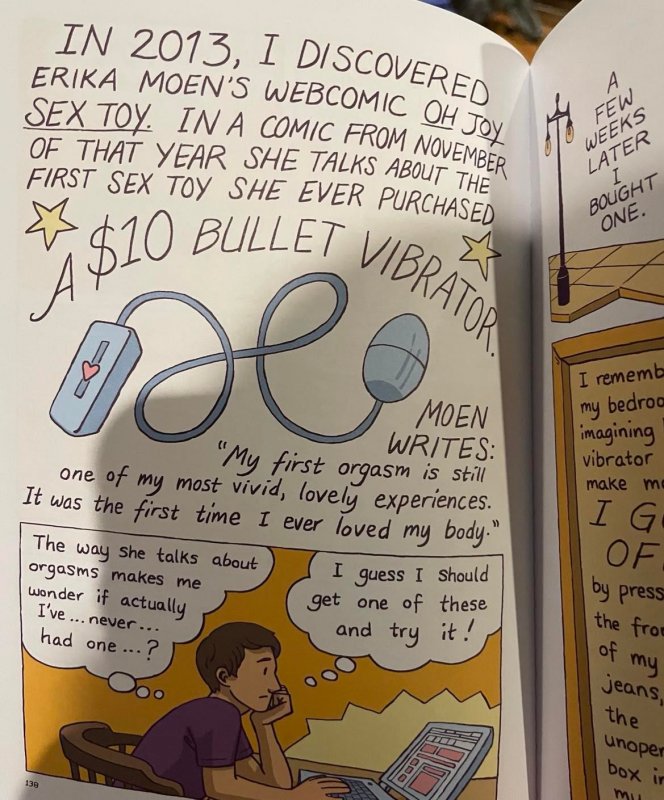 IN 2013, I DISCOVERED
ERIKA MOEN'S WEBCOMIC OH JOY
SEX TOY. IN A COMIC FROM NOVEMBER
OF THAT YEAR SHE TALKS ABOUT THE
FIRST SEX TOY SHE EVER PURCHASED
A $10 BULLET VIBRATOR.
MOEN
WRITES:
"My first orgasm is still
one of my most vivid, lovely experiences.
It was the first time I ever loved my body."
The way she talks about
orgasms makes me
wonder if actually
I've...never...
had one...?
I guess I should
get one of these
and try it!
138
A
FEW
WEEKS
LATER
I
BOUGHT
ONE.
I
my
imagining
vibrator
make
I
by
the
of my
jeans,
the
box